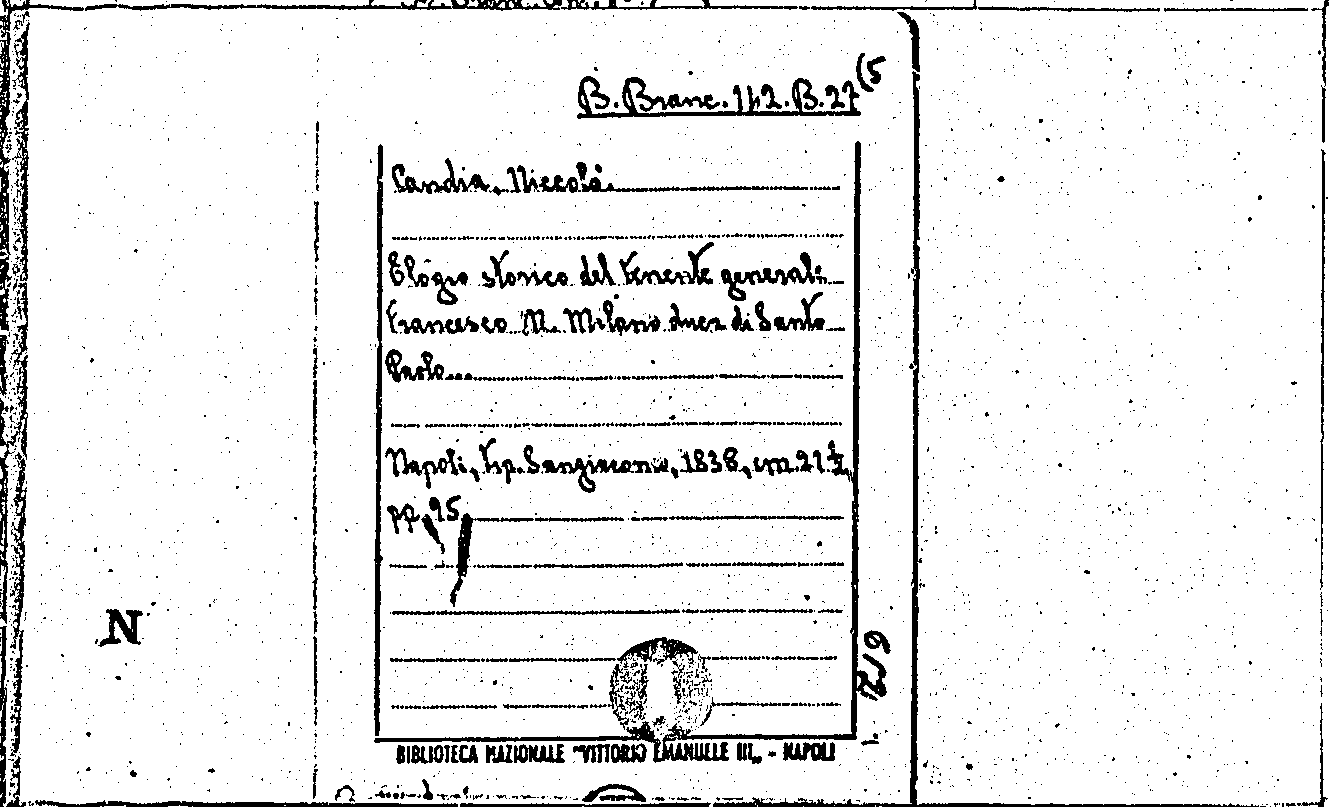 B. Branc. 142. B. 27 (5
Candia, Niccolò.
Elogio storico del tenente generale
Francesco M. Milano duca di Santo
Paolo...
Napoli, tip. Sangiacomo, 1838, cm. 21 ½,
pp. 25
N
619
BIBLIOTECA NAZIONALE "VITTORIO EMANUELE III„ - NAPOLI